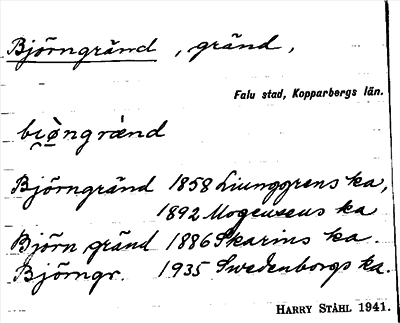 Björngränd, gränd,
Falu stad, Kopparbergs län.
bi̯ø̀ngrænd
Björngränd 1858 Ljunggrens ka,
1892 Mogensens ka
Björn gränd 1886 Skarins ka.
Björngr. 1935 Swedenborgs ka.
HARRY STÅHL 1941.